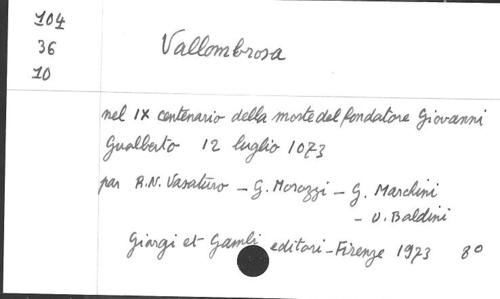 104
36
10
Vallombrosa
nel IX centenario della morte del fondatore Giovanni
Gualberto 12 luglio 1073
par R.N. Vasaturo - G. Morozzi - G. Marchini
- U. Baldini
Giorgi et Gambi editori - Firenze 1973 8°